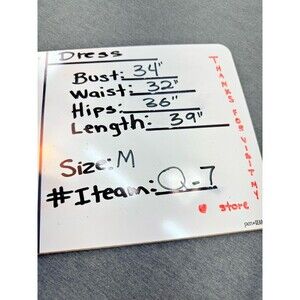 Dress
Bust: 34"
Waist: 32"
Hips: 36"
Length: 39"
Size: M
#Iteam: Q-7
THANKS FOR VISIT MY
store